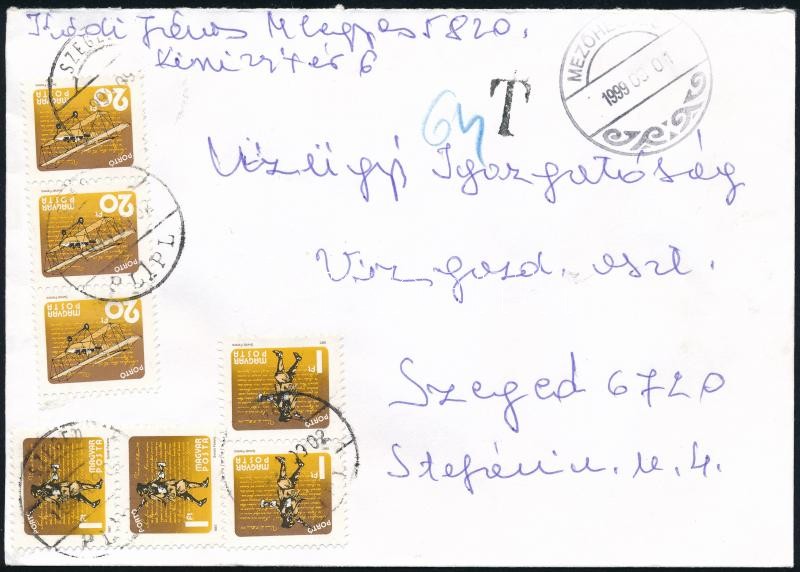 János Mhegyes 5820.
Kinizsi tér 6
MEZŐHE
1999 03 01
64 T
Vízügyi Igazgatóság
Vízgazd. oszt.
Szeged 6720
Stefánia u. 4.
SZEGED
20 Ft
MAGYAR POSTA
PORTO
20 Ft
MAGYAR POSTA
PORTO
PLIPL
20 Ft
MAGYAR POSTA
PORTO
1 Ft
MAGYAR POSTA
PORTO
1 Ft
MAGYAR POSTA
PORTO
03 02
MAGYAR POSTA
PORTO
1 Ft
MAGYAR POSTA
PORTO
1 Ft